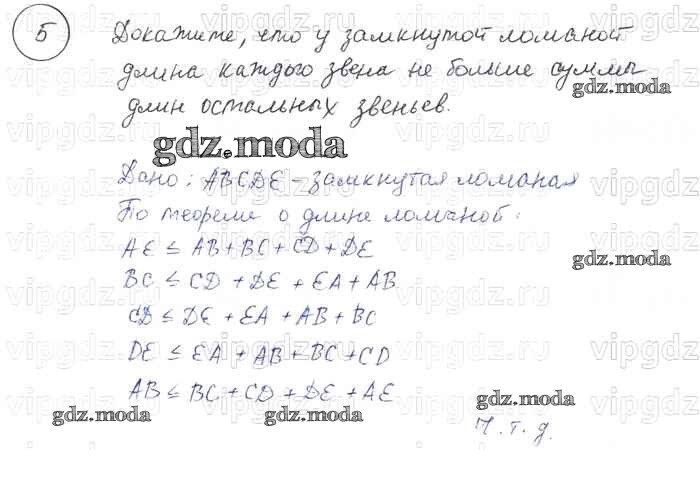 5 Докажите, что у замкнутой ломаной
длина каждого звена не больше суммы
длин остальных звеньев.
gdz.moda
gdz.moda
Дано: ABCDE – замкнутая ломаная
По теореме о длине ломаной:
AE ≤ AB + BC + CD + DE
gdz.moda
BC ≤ CD + DE + EA + AB
CD ≤ DE + EA + AB + BC
DE ≤ EA + AB + BC + CD
AB ≤ BC + CD + DE + AE
gdz.moda gdz.moda gdz.moda
Ч.т.д.
vipgdz.ru